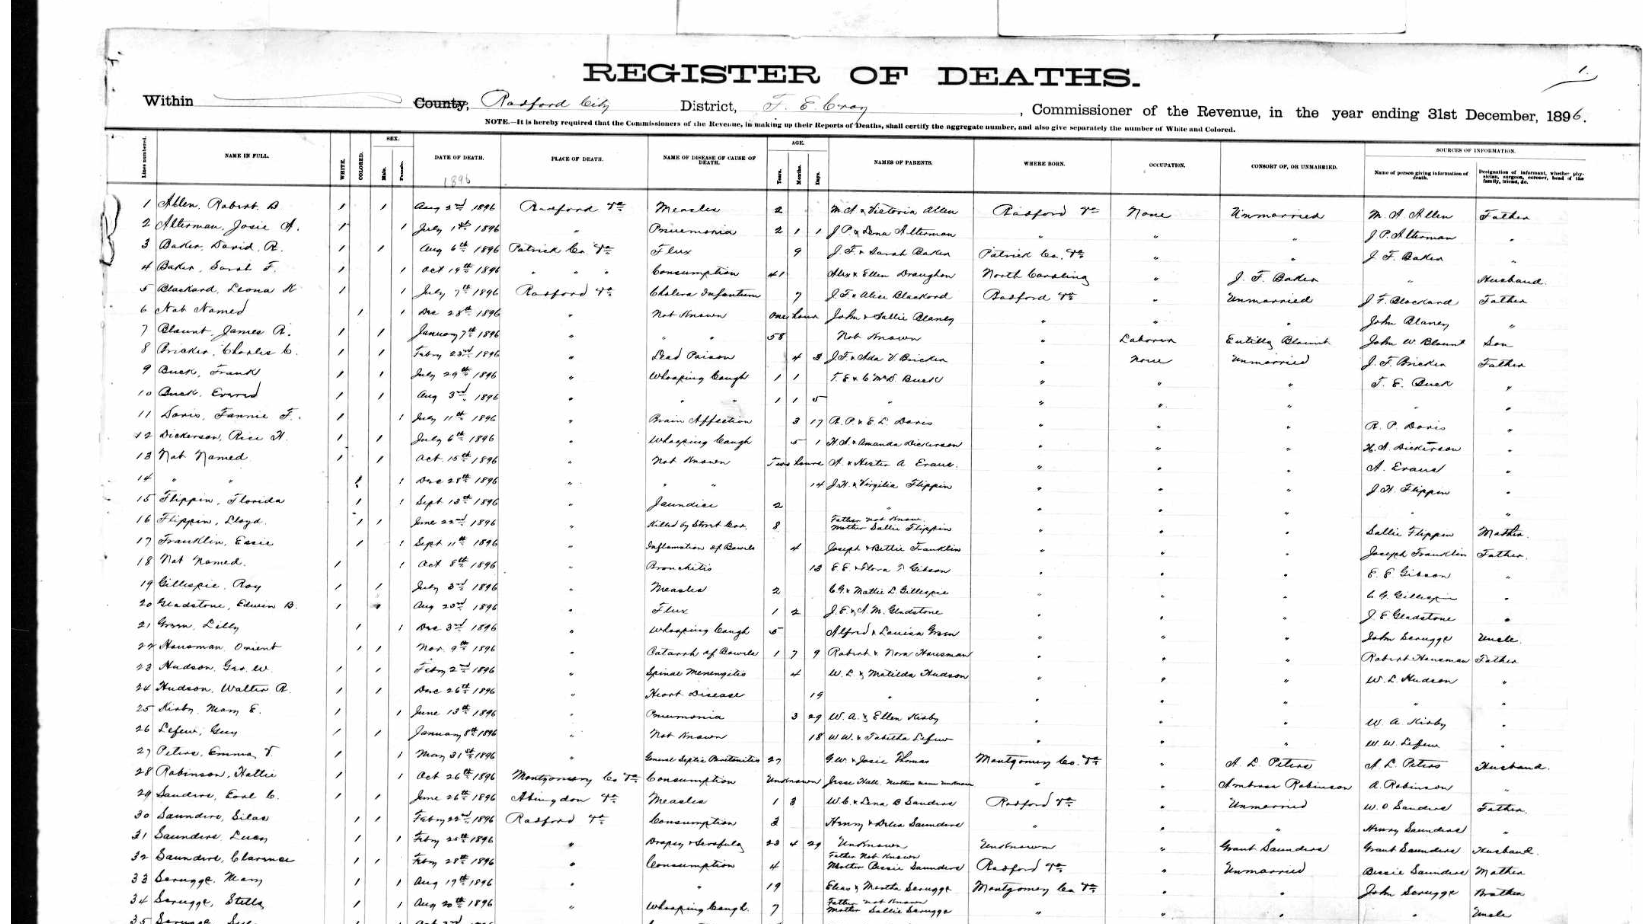 1.
REGISTER OF DEATHS.
Within County, Radford City District, T. E. Cray, Commissioner of the Revenue, in the year ending 31st December, 1896.
NOTE.—It is hereby required that the Commissioners of the Revenue, in making up their Reports of Deaths, shall certify the aggregate number, and also give separately the number of White and Colored.
SEX. AGE. SOURCES OF INFORMATION.
Lines numbered. NAME IN FULL. WHITE. COLORED. Male. Female. DATE OF DEATH. PLACE OF DEATH. NAME OF DISEASE OF CAUSE OF DEATH. Years. Months. Days. NAMES OF PARENTS. WHERE BORN. OCCUPATION. CONSORT OF, OR UNMARRIED. Name of person giving information of death. Designation of informant, whether physician, surgeon, coroner, head of the family, friend, &c.
1896
1 Allen, Robert B 1 1 Aug 2nd 1896 Radford Va Measles 2 M. A & Victoria Allen Radford Va None Unmarried M. A Allen Father
2 Alterman, Josie A. 1 1 July 1st 1896 " Pneumonia 2 1 1 J P. & Lena Alterman " " " J P Alterman "
3 Baker, David R. 1 1 Aug 6th 1896 Patrick Co Va Flux 9 J. F & Sarah Baker Patrick Co. Va " " J F. Baker "
4 Baker, Sarah F. 1 1 Oct 19th 1896 " " " Consumption 41 Alex & Ellen Draughon North Carolina " J. F. Baker " Husband
5 Blackard, Leona H 1 1 July 7th 1896 Radford Va Cholera Infantum 7 J F & Alice Blackard Radford Va " Unmarried J F. Blackard Father
6 Not Named 1 1 Dec 28th 1896 " Not Known One hour John & Sallie Blaney " " " John Blaney "
7 Blount, James R. 1 1 January 7th 1896 " " " 58 Not Known " Laborer Blount John W. Blount Son
8 Bricker, Charles C. 1 1 Feby 23rd 1896 " Lead Poison 4 3 J. F & Ada V Bricker " None Unmarried J. F. Bricker Father
9 Buck, Frank 1 1 July 29th 1896 " Whooping Cough 1 1 T. E & C McD. Buck " " " T. E. Buck "
10 Buck, Everod 1 1 Aug 3rd 1896 " " " 1 1 5 " " " " " "
11 Davis, Fannie F. 1 1 July 11th 1896 " Brain Affection 3 17 R. P & E. L Davis " " " R. P. Davis "
12 Dickerson, Rice H. 1 1 July 6th 1896 " Whooping Cough 5 1 H. A & Amanda Dickerson " " " H. A. Dickerson "
13 Not Named 1 1 Oct 15th 1896 " Not Known Two hours A. & Hester A Evans. " " " A. Evans "
14 " " 1 1 Dec 28th 1896 " " " 14 J. H. & Virgilia Flippin " " " J H. Flippin "
15 Flippin, Florida 1 1 Sept 13th 1896 " Jaundice 2 " " " " " "
16 Flippin, Lloyd. 1 1 June 22nd 1896 " Killed by Street Car. 8 Father not Known Mother Sallie Flippin " " " Sallie Flippin Mother
17 Franklin, Essie 1 1 Sept 11th 1896 " Inflamation of Bowels 4 Joseph & Bettie Franklin " " " Joseph Franklin Father.
18 Not Named. 1 1 Oct 8th 1896 " Bronchitis 13 E E & Flora T Gibson " " " E. E Gibson "
19 Gillespie, Roy 1 1 July 3rd 1896 " Measles 2 C G & Mattie L Gillespie " " " C G Gillespie "
20 Gladstone, Edwin B. 1 1 Aug 20 1896 " Flux 1 2 J. E. & A. M. Gladstone " " " J. E Gladstone "
21 Green, Lelly 1 1 Dec 3rd 1896 " Whooping Cough 5 Alfred & Louisa Green " " " John Scruggs Uncle.
22 Hausman, Orient 1 1 Nov. 9th 1896 " Catarrh of Bowels 1 7 9 Robert & Nora Hausman " " " Robert Hausman Father
23 Hudson, Geo. W 1 1 Feby 2nd 1896 " Spinal Menengitis 4 W. L & Matilda Hudson " " " W. L Hudson "
24 Hudson, Walter R. 1 1 Dec 26th 1896 " Heart Disease 19 " " " " " "
25 Kirby, Mary E. 1 1 June 13th 1896 " Pneumonia 3 29 W. A. & Ellen Kirby " " " W. A. Kirby "
26 Lefew, Guy 1 1 January 8th 1896 " Not Known 18 W W. & Tabitha Lefew " " " W W. Lefew "
27 Peters, Emma V 1 1 May 31st 1896 " General Septic Peritonitis 27 G W. & Josie Thomas Montgomery Co. Va " A L Peters A L Peters Husband.
28 Robinson, Hattie 1 1 Oct 26th 1896 Montgomery Co Va Consumption Unknown Jesse Hall Mother name unknown " " Ambrose Robinson A. Robinson "
29 Sanders, Earl C. 1 1 June 26th 1896 Abingdon Va Measles 1 3 W. C. & Lena B Sanders Radford Va " Unmarried W. C Sanders Father.
30 Saunders, Silas 1 1 Feby 22nd 1896 Radford Va Consumption 3 Henry & Delia Saunders " " " Henry Saunders "
31 Saunders, Lucy 1 1 Feby 20th 1896 " Dropsy & Scrofula 23 4 29 Unknown Unknown " Grant Saunders Grant Saunders Husband.
32 Saunders, Clarence 1 1 Feby 28th 1896 " Consumption 4 Father Not Known Mother Bessie Saunders Radford Va " Unmarried Bessie Saunders Mother
33 Scruggs, Mary 1 1 Aug 19th 1896 " " 19 Elias & Martha Scruggs Montgomery Co Va " " John Scruggs Brother
34 Scruggs, Stella 1 1 Aug 20th 1896 " Whooping Cough. 7 Father not Known Mother Sallie Scruggs " " " " Uncle
35